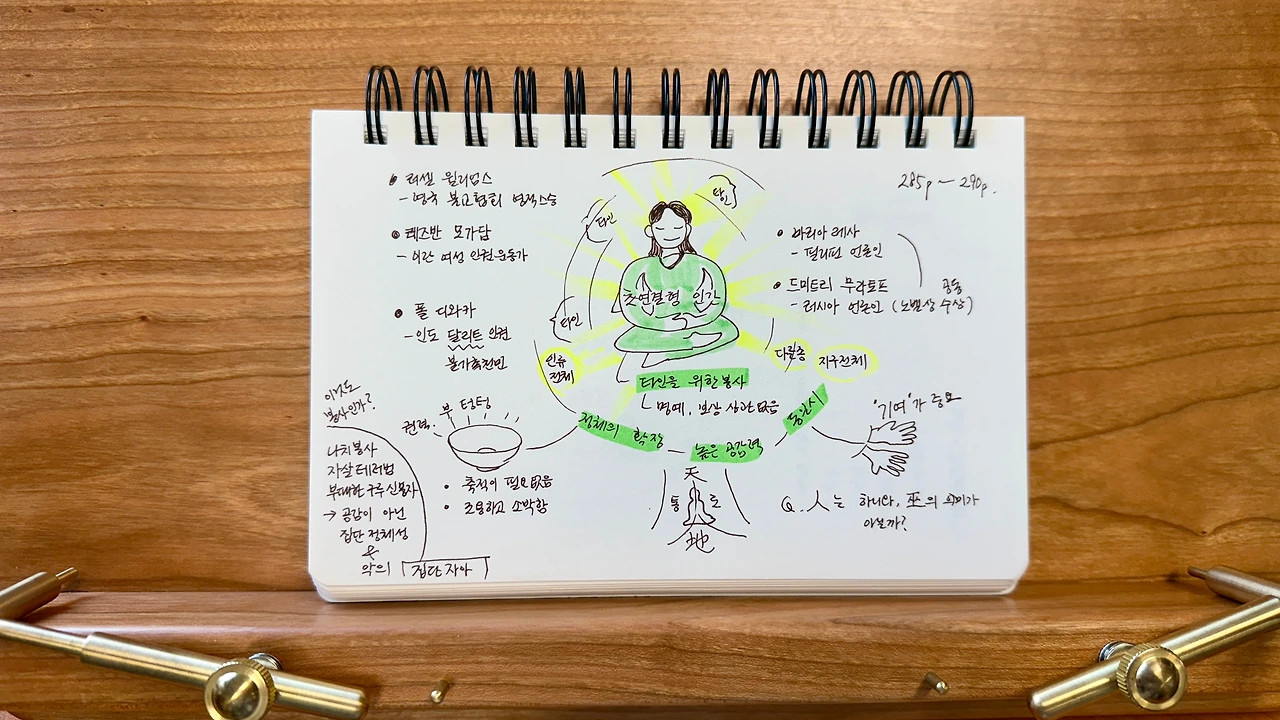 285p ~ 290p.
• 러셀 윌리엄스
- 영국 불교협회 명적스승
• 레즈반 모가담
- 이란 여성 인권운동가
• 폴 디와카
- 인도 달리트 인권
불가촉천민
타인
타인
타인
초연결형 인간
인류
전체
다필층
지구전체
• 마리아 레사
- 필리핀 언론인
• 드미트리 무라토프
- 러시아 언론인 (노벨상 수상)
공동
타인을 위한 봉사
명예, 보상 상관 없음
정체의 확장
높은 공감력
동일시
이것도
봉사인가?
나치봉사
자살테러범
부패한 구루 신봉자
→ 공감이 아닌
집단 정체성
&
악의 집단자아
권력.
부 텅텅
• 축적이 필요없음
• 조용하고 소박함
天
통 로
地
"기여"가 중요
Q. 人는 하나다, 巫의 의미가
아닐까?